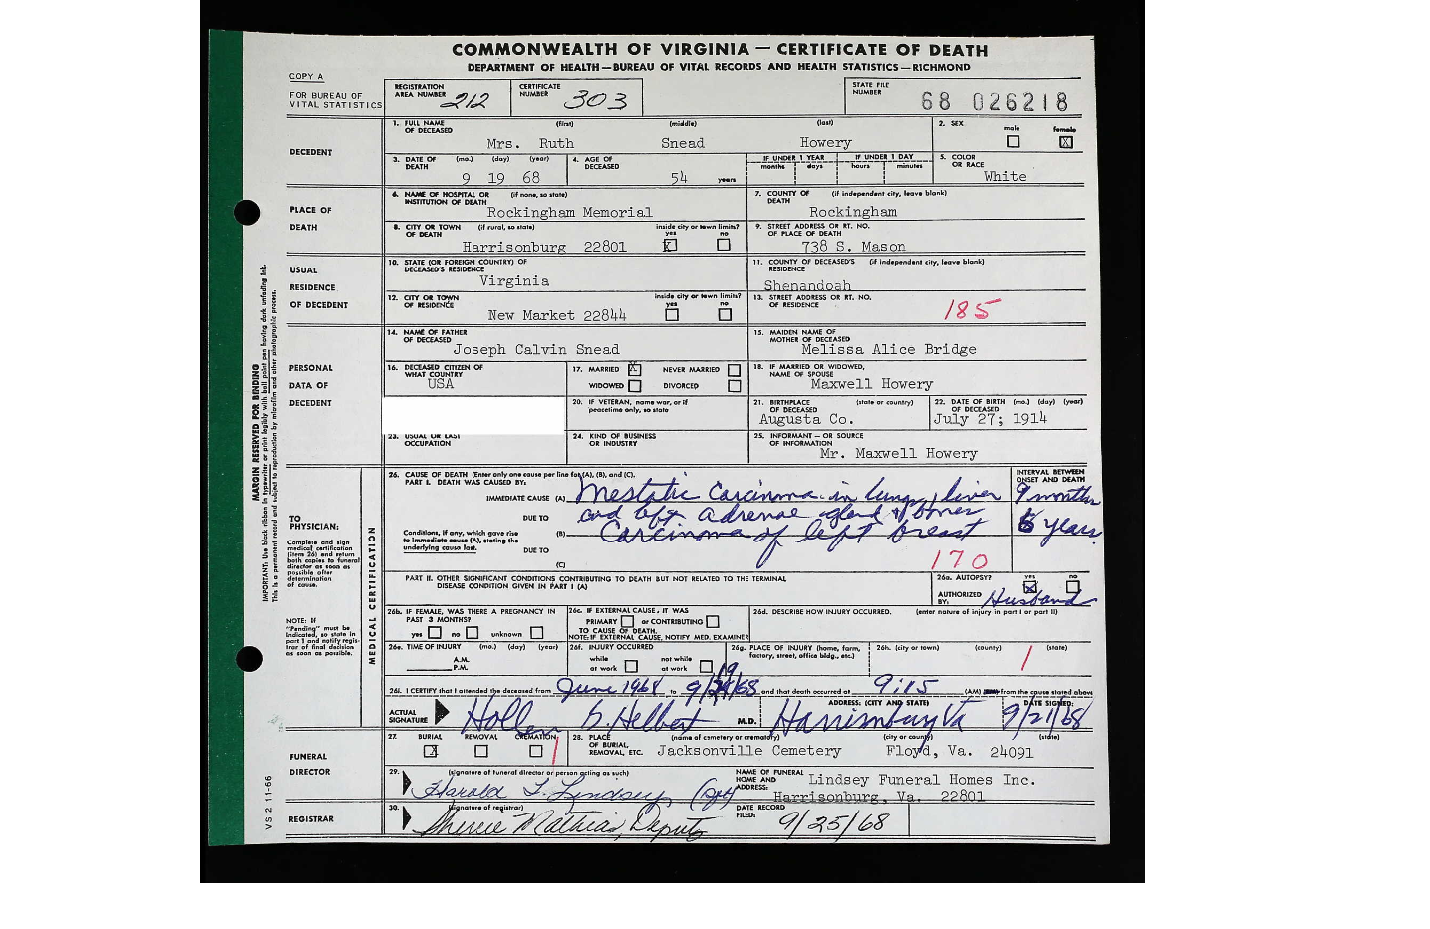 COMMONWEALTH OF VIRGINIA — CERTIFICATE OF DEATH
DEPARTMENT OF HEALTH—BUREAU OF VITAL RECORDS AND HEALTH STATISTICS—RICHMOND
COPY A
FOR BUREAU OF VITAL STATISTICS
REGISTRATION AREA NUMBER 212
CERTIFICATE NUMBER 303
STATE FILE NUMBER 68 026218
DECEDENT
1. FULL NAME OF DECEASED (first) (middle) (last)
Mrs. Ruth Snead Howery
2. SEX male female X
3. DATE OF DEATH (mo.) (day) (year)
9 19 68
4. AGE OF DECEASED
54 years
IF UNDER 1 YEAR months days
IF UNDER 1 DAY hours minutes
5. COLOR OR RACE
White
PLACE OF DEATH
6. NAME OF HOSPITAL OR INSTITUTION OF DEATH (if none, so state)
Rockingham Memorial
7. COUNTY OF DEATH (if independent city, leave blank)
Rockingham
8. CITY OR TOWN OF DEATH (if rural, so state) inside city or town limits? yes no
Harrisonburg 22801 X
9. STREET ADDRESS OR RT. NO. OF PLACE OF DEATH
738 S. Mason
USUAL RESIDENCE OF DECEDENT
10. STATE (OR FOREIGN COUNTRY) OF DECEASED'S RESIDENCE
Virginia
11. COUNTY OF DECEASED'S RESIDENCE (if independent city, leave blank)
Shenandoah
12. CITY OR TOWN OF RESIDENCE inside city or town limits? yes no
New Market 22844
13. STREET ADDRESS OR RT. NO. OF RESIDENCE
185
PERSONAL DATA OF DECEDENT
14. NAME OF FATHER OF DECEASED
Joseph Calvin Snead
15. MAIDEN NAME OF MOTHER OF DECEASED
Melissa Alice Bridge
16. DECEASED CITIZEN OF WHAT COUNTRY
USA
17. MARRIED X NEVER MARRIED
WIDOWED DIVORCED
18. IF MARRIED OR WIDOWED, NAME OF SPOUSE
Maxwell Howery
20. IF VETERAN, name war, or if peacetime only, so state
21. BIRTHPLACE OF DECEASED (state or country)
Augusta Co.
22. DATE OF BIRTH OF DECEASED (mo.) (day) (year)
July 27; 1914
23. USUAL OR LAST OCCUPATION
24. KIND OF BUSINESS OR INDUSTRY
25. INFORMANT — OR SOURCE OF INFORMATION
Mr. Maxwell Howery
MARGIN RESERVED FOR BINDING
IMPORTANT: Use black ribbon in typewriter or print legibly with ball point pen having dark unfading ink.
This is a permanent record and subject to reproduction by microfilm and other photographic process.
TO PHYSICIAN:
Complete and sign medical certification (item 26) and return both copies to funeral director as soon as possible after determination of cause.
NOTE: IF "Pending" must be indicated, so state in part 1 and notify registrar of final decision as soon as possible.
MEDICAL CERTIFICATION
26. CAUSE OF DEATH (Enter only one cause per line for (A), (B), and (C).
PART I. DEATH WAS CAUSED BY:
INTERVAL BETWEEN ONSET AND DEATH
IMMEDIATE CAUSE (A) Mestatic Carcinoma in lungs, liver 9 months
DUE TO and left adrenae gland & bones
Conditions, if any, which gave rise to immediate cause (A), stating the underlying cause last.
(B) Carcinoma of left breast 5 years
DUE TO
(C)
170
PART II. OTHER SIGNIFICANT CONDITIONS CONTRIBUTING TO DEATH BUT NOT RELATED TO THE TERMINAL DISEASE CONDITION GIVEN IN PART I (A)
26a. AUTOPSY? yes X no
AUTHORIZED BY: Husband
26b. IF FEMALE, WAS THERE A PREGNANCY IN PAST 3 MONTHS?
yes no unknown
26c. IF EXTERNAL CAUSE, IT WAS
PRIMARY or CONTRIBUTING
TO CAUSE OF DEATH.
NOTE: IF EXTERNAL CAUSE, NOTIFY MED. EXAMINER
26d. DESCRIBE HOW INJURY OCCURRED. (enter nature of injury in part I or part II)
26e. TIME OF INJURY (mo.) (day) (year)
A.M.
P.M.
26f. INJURY OCCURRED
while at work not while at work
26g. PLACE OF INJURY (home, farm, factory, street, office bldg., etc.)
26h. (city or town) (county) (state)
1
26i. I CERTIFY that I attended the deceased from June 1968 to 9/19/68 and that death occurred at 9:15 (AM) from the cause stated above
ACTUAL SIGNATURE Hollen G. Helbert M.D.
ADDRESS: (CITY AND STATE) Harrisonburg Va
DATE SIGNED: 9/21/68
FUNERAL DIRECTOR
27. BURIAL X REMOVAL CREMATION 1
28. PLACE OF BURIAL, REMOVAL, ETC. (name of cemetery or crematory) (city or county) (state)
Jacksonville Cemetery Floyd, Va. 24091
29. (signature of funeral director or person acting as such)
Harold L. Lindsey
NAME OF FUNERAL HOME AND ADDRESS:
Lindsey Funeral Homes Inc.
Harrisonburg, Va. 22801
REGISTRAR
30. (signature of registrar)
Mathias, Deputy
DATE RECORD FILED: 9/25/68
VS 2 11-66